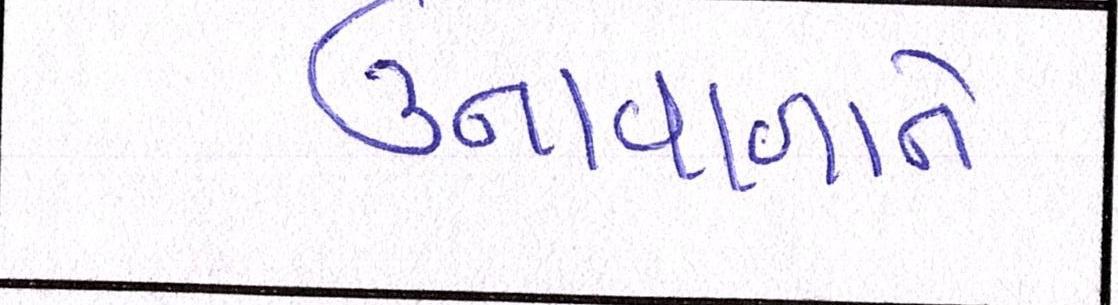 ઉનાવાળાને